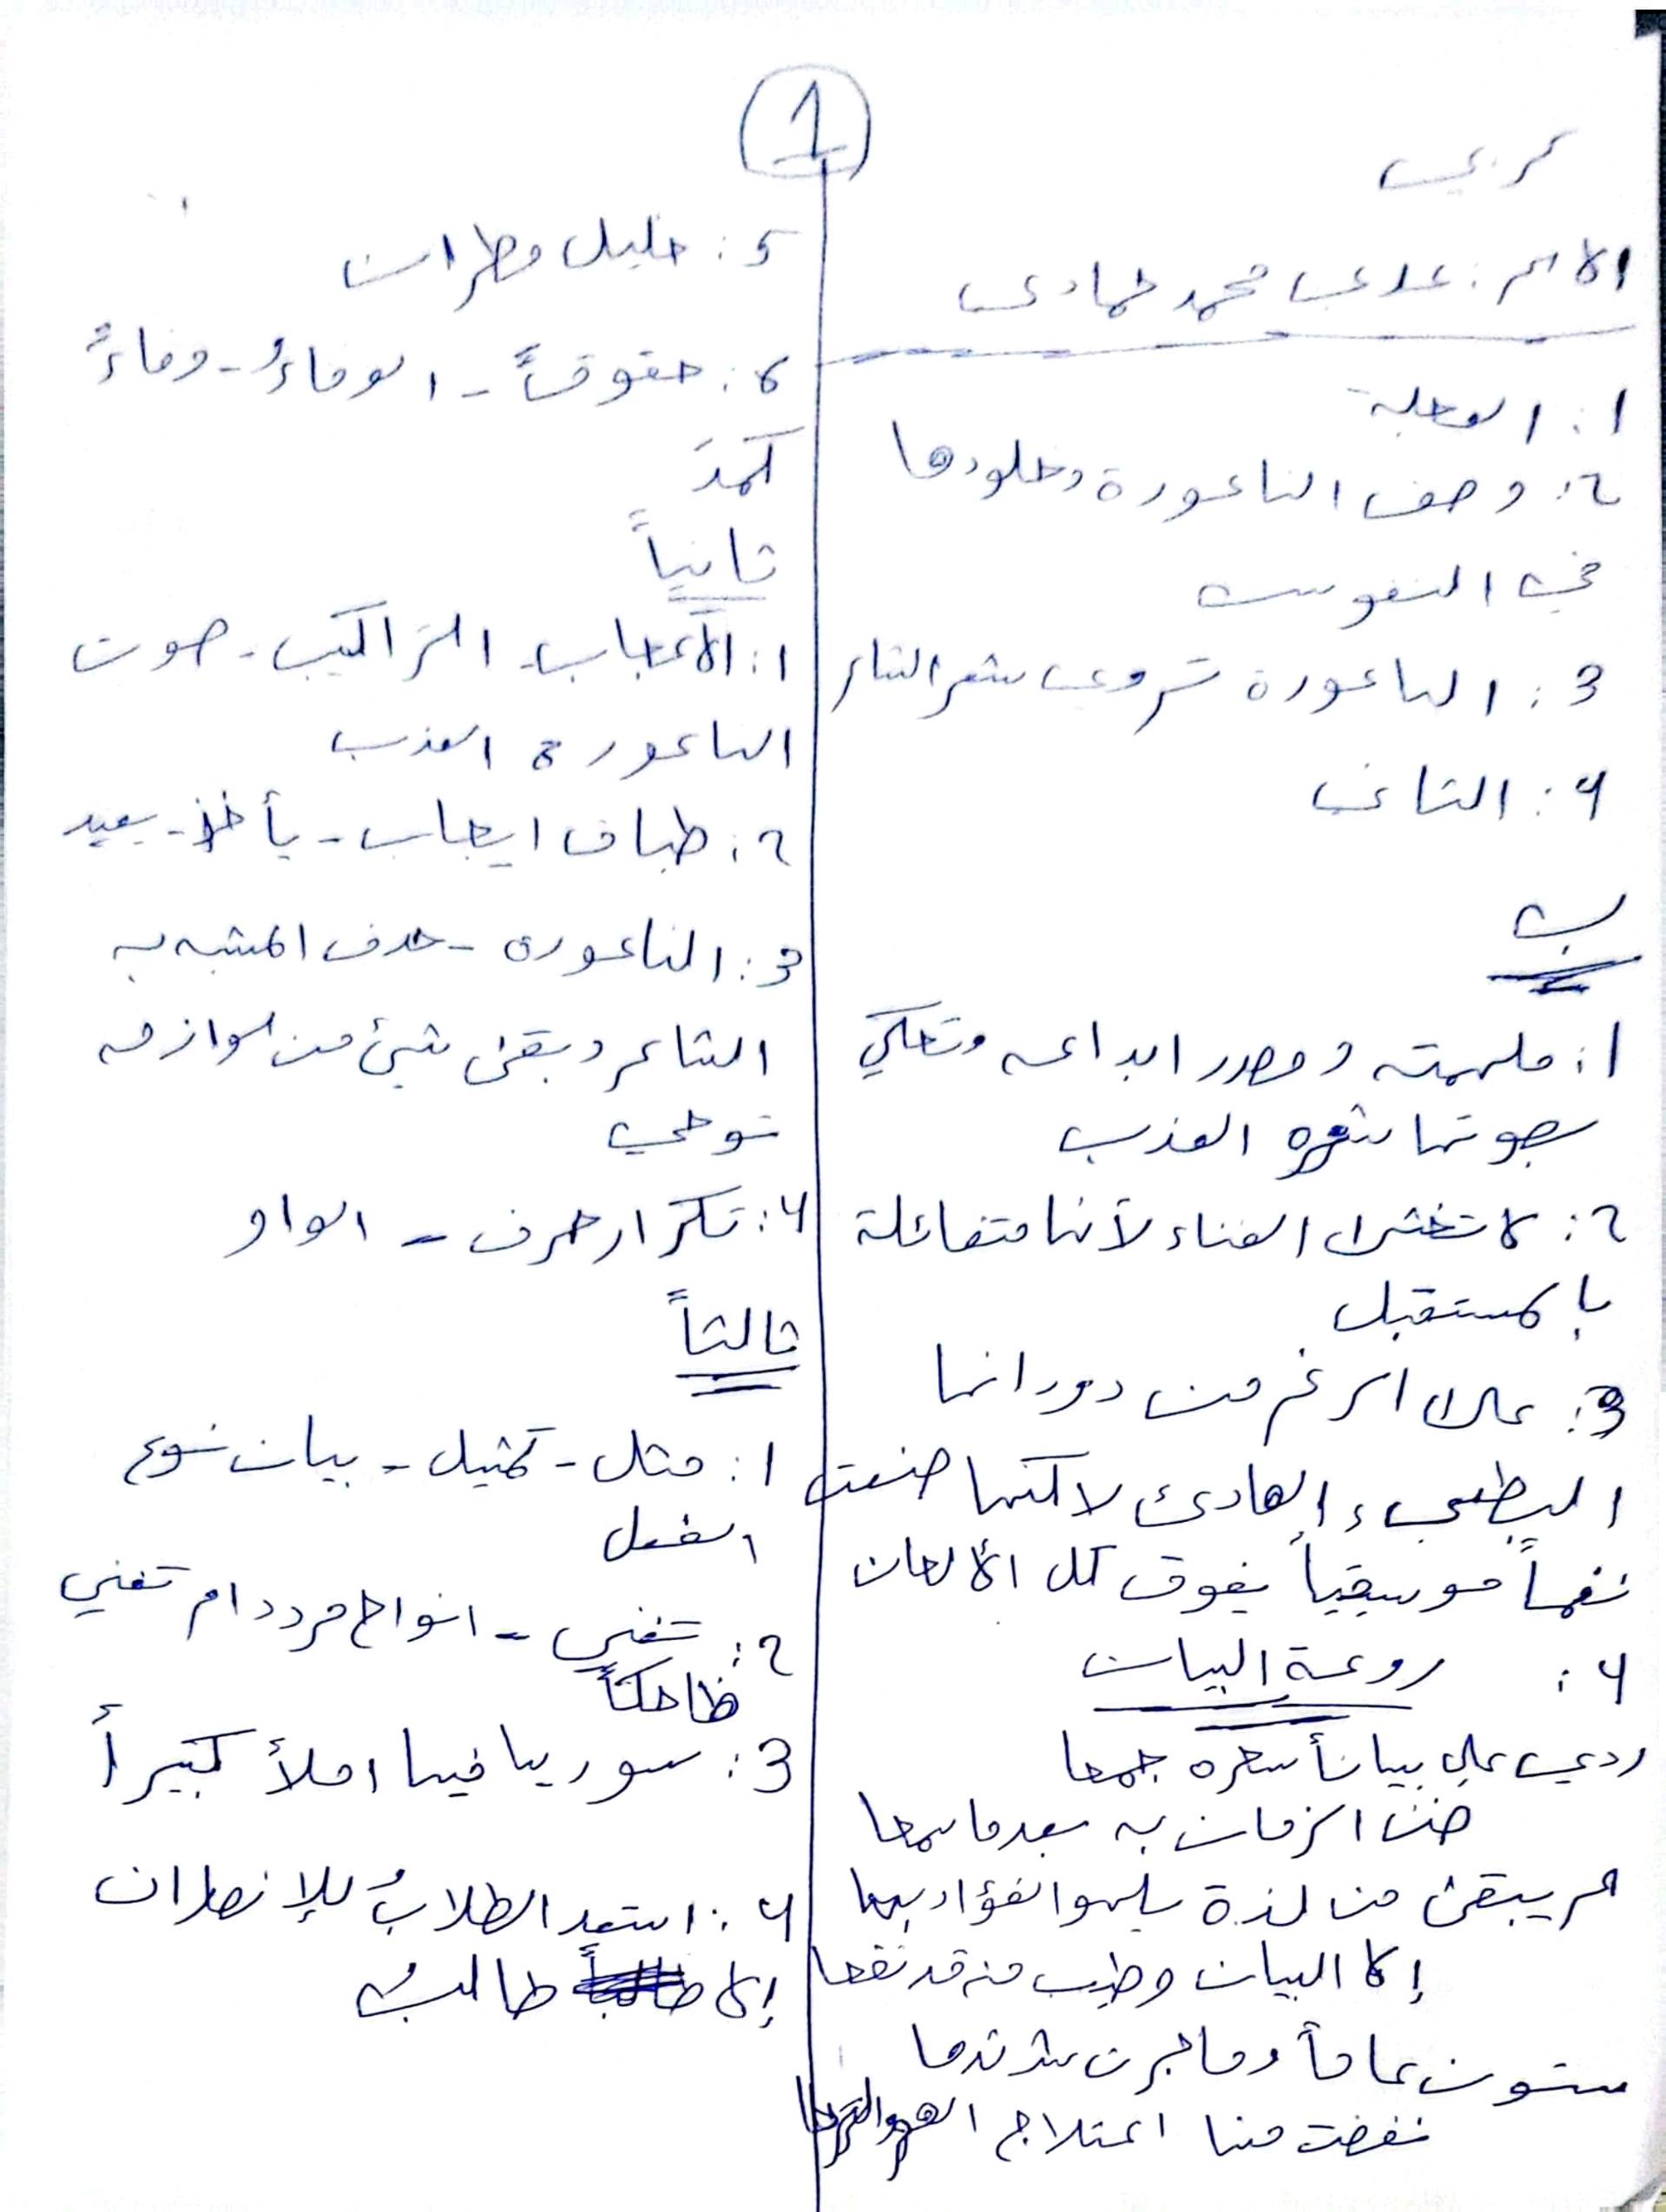 1
عربي
الاسم: عدي محمد حمادي
1: العجلة
2: وصف الناعورة وخلودها
في النفوس
3: الناعورة تروي شعر الشاعر
4: الثاني
ب
1: ملهمته ومصدر ابداعه وتحكي
بصوتها شعره العذب
2: لا تخشى الفناء لأنها متفائلة
بالمستقبل
3: على الرغم من دورانها
البطيء والهادئ لاكنها صنعت
نغماً موسيقياً يفوق كل الألحان
4: روعة البيان
ردي علي بياناً سحره جمعا
ضن الزمان به بعدما سمعا
لم يبقى من لذة يلهوا الفؤاد بها
إلا البيان وطيب منه قد نفعا
ستون عاماً وما
نفضت منا اعتلاج الهم
5: خليل مطران
6: حقوقاً - الوفاءُ - وفاءً
كمدَ
ثانياً
1: الأعجاب - التراكيب - صوت
الناعورة العذب
2: طباق ايجاب - يأخذ - يعيد
3: الناعورة - حذف المشبه به
الشاعر وبقى شيئ من لوازمه
توحي
4: تكرار حرف - الواو
ثالثاً
1: مثل - تمثيل - بيان نوع
الفعل
2: تغني - انواح مردد ام تغني
ظاحكاً
3: سوريا فيها املاً كبيراً
4: استعد الطلابُ للإنصران
إلا طالبُ